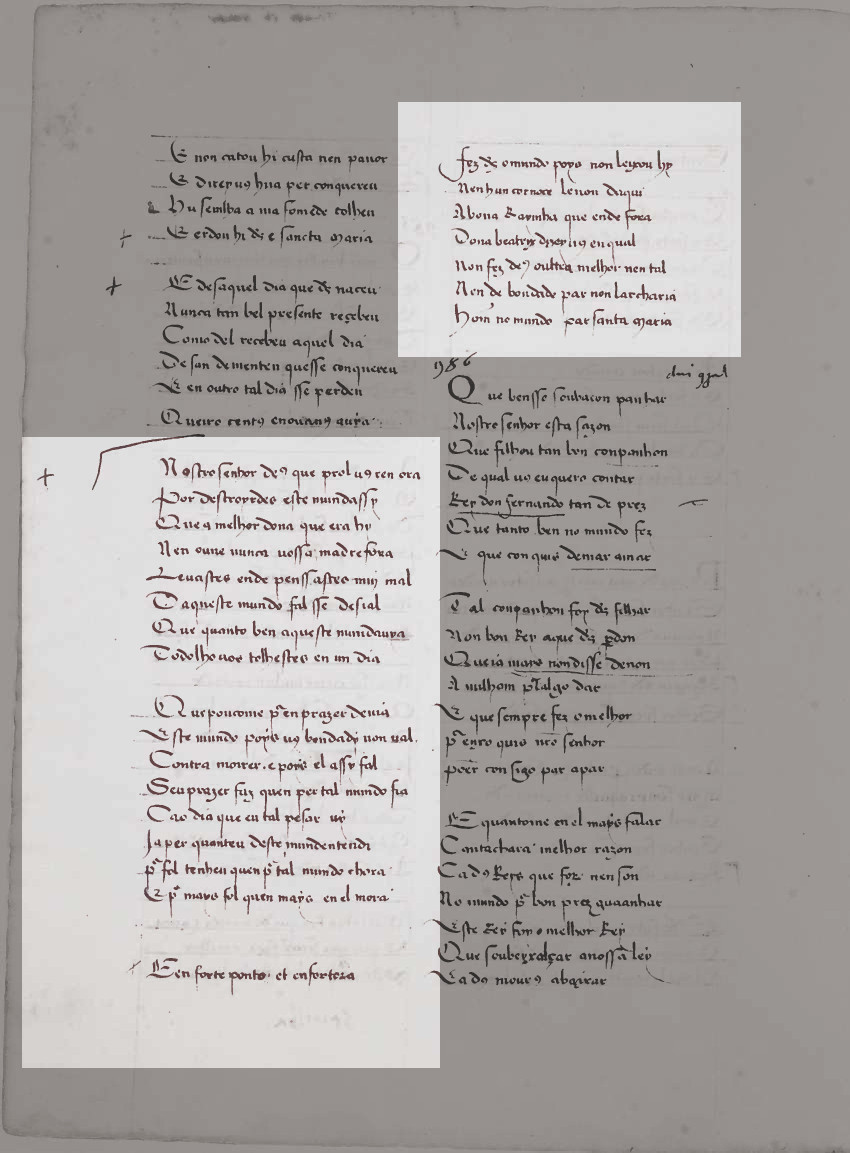 E non catou hi custa nen pauor
E direyuꝯ hũa per conquereu
Hu semlha a ma fomede colheu
E erdon hi ds̃ e sancta maria
E desaquel dia que ds̃ naceu
Nunca tan bel presente reçebeu
Como del recebeu aquel dia
De san demẽten quesse conquereu
E en outro tal dia sse perdeu
Queiro centꝯ enouãtꝯ auya
Nostro senhor deꝯ que prol uꝯ ten ora
Por destroyrdes este mundassy
Que a melhor dona que era hy
Nen ouue nunca uossa madre fora
Leuastes ende penssastes muj mal
Daqueste mundo fal sse desial
Que quanto ben aqueste mundauya
Todolho uos tolhestes en un dia
Que poucome pʳ en prazer deuia
Este mundo poys uꝯ bondady non ual
Contra morrer. e poys el assy fal
Seu prazer faz quen per tal mundo fia
Cao dia que eu tal pesar uy
Ja per quanteu deste mundentendi
pʳ fol tenheu quen pʳ tal mundo chora
E pʳ mays fol quen mays en el mora
Een forte ponto. et en fortora
Fez ds̃ o mundo poys non leyxou hy
Nenhun cõnorte leuou daqui
A bona Raynha que ende fora
Dona beatriz direyuꝯ eu qual
Non fez deꝯ outra melhor nen tal
Nen de bondade par non lacharia
Homẽ no mundo par santa maria
1986
Que bensse soubacon panhar
Nostro senhor esta sazon
Que filhou tan bon conpanhon
De qual uꝯ eu quero contar
Rey don fernando tan de prez
Que tanto ben no mundo fez
E que conquis demar amar
Tal conpanhon foy ds̃ filhar
Non bon Rey aque ds̃ ꝑdon
Que ia mays nondisse denon
A nulhom pʳ lalgo dar
E que sempre fez o melhor
pʳ en xo quis nr̃o senhor
poer consigo par apar
E quantome en el mays falar
Tantachara melhor razon
Ca dꝯ Reys que foy nen son
No mundo pʳ bon prez guaanhar
Este Rey foy o melhor Rey
Que soubeyxalçar anossa ley
E a dꝯ mourꝯ abaixar